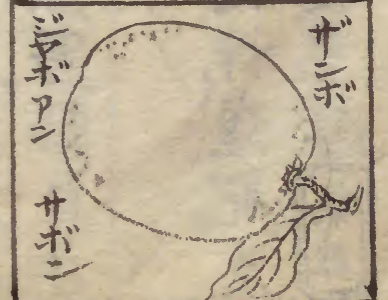 ザンボ
ジヤボアン
サボン